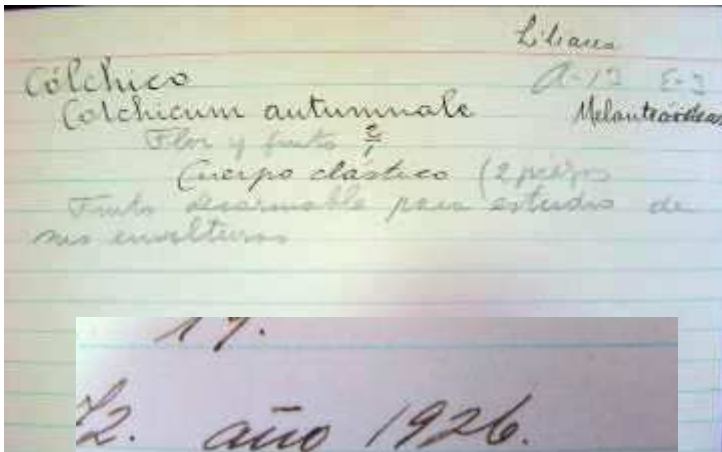 Liliacea
Cólchico A-13 E-3
Colchicum autumnale Melantaoideas
Flor y fruto 2/1
Cuerpo clástico (2 piezas
Fruto desarmable para estudio de
sus envolturas
17.
72. año 1926.